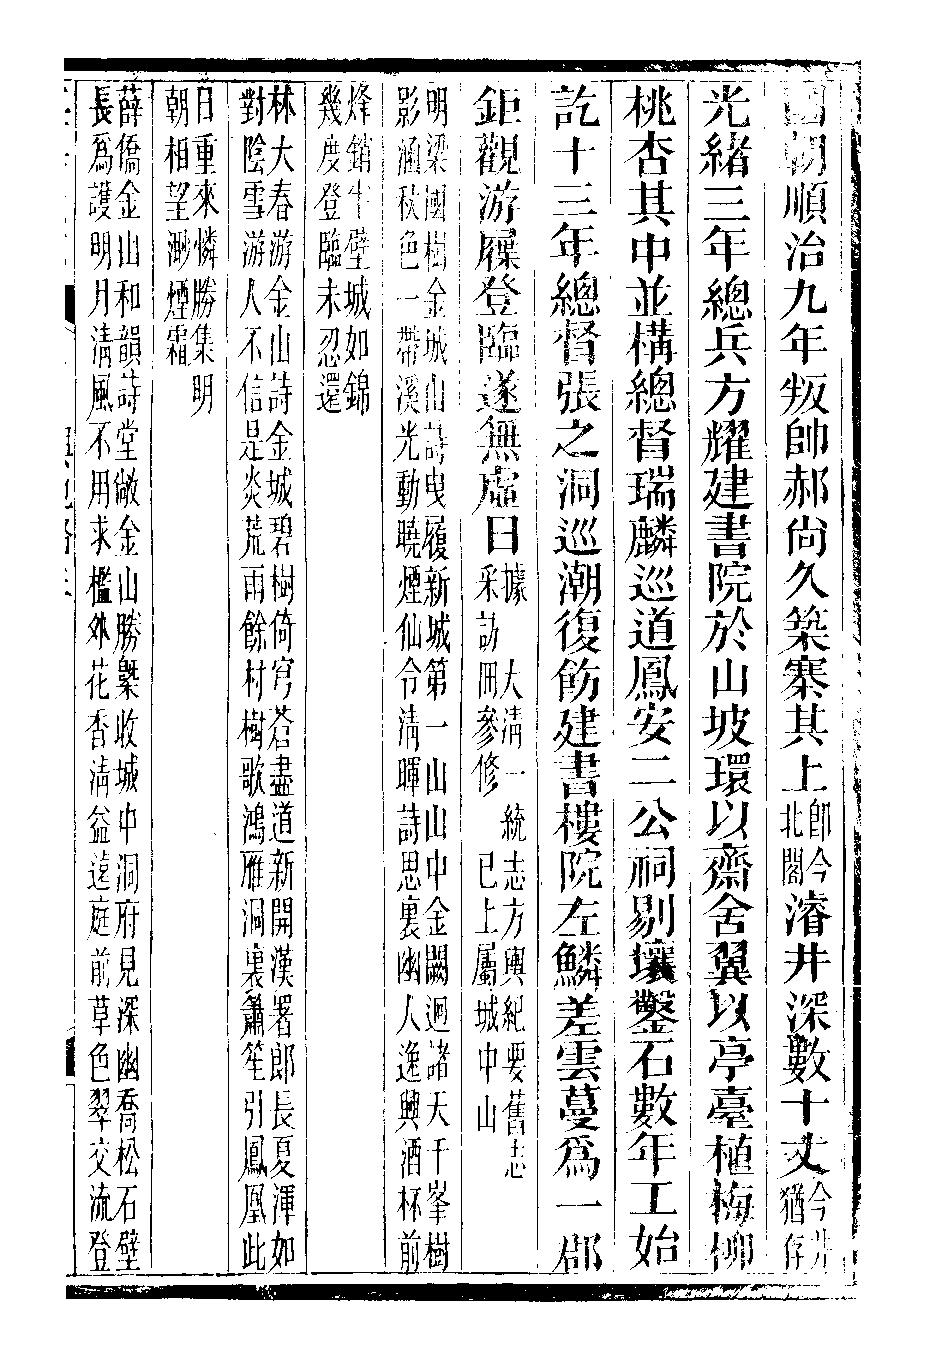 國朝順治九年叛帥郝尚久築寨其上即今北閣濬井深數十丈今井猶存
光緒三年總兵方耀建書院於山坡環以齋舍翼以亭臺植梅柳
桃杏其中並構總督瑞麟巡道鳳安二公祠剔壤鑿石數年工始
訖十三年總督張之洞巡潮復飭建書樓院左鱗差雲蔓爲一郡
鉅觀游屧登臨遂無虛日據大清一統志方輿紀要舊志采訪冊參修 已上屬城中山
明梁國樹金城山詩曳履新城第一山山中金闕迥諸天千峯樹
影涵秋色一帶溪光動曉煙仙令清暉詩思裏幽人逸興酒杯前
烽銷半壁城如錦
幾度登臨未忍還
林大春游金山詩金城碧樹倚穹蒼盡道新開漢署郎長夏渾如
對陰雪游人不信是炎荒雨餘村樹歌鴻雁洞裏簫笙引鳳凰此
日重來憐勝集明
朝相望渺煙霜
薛僑金山和韻詩堂敞金山勝槩收城中洞府見深幽喬松石壁
長爲護明月清風不用求檻外花香清益遠庭前草色翠交流登